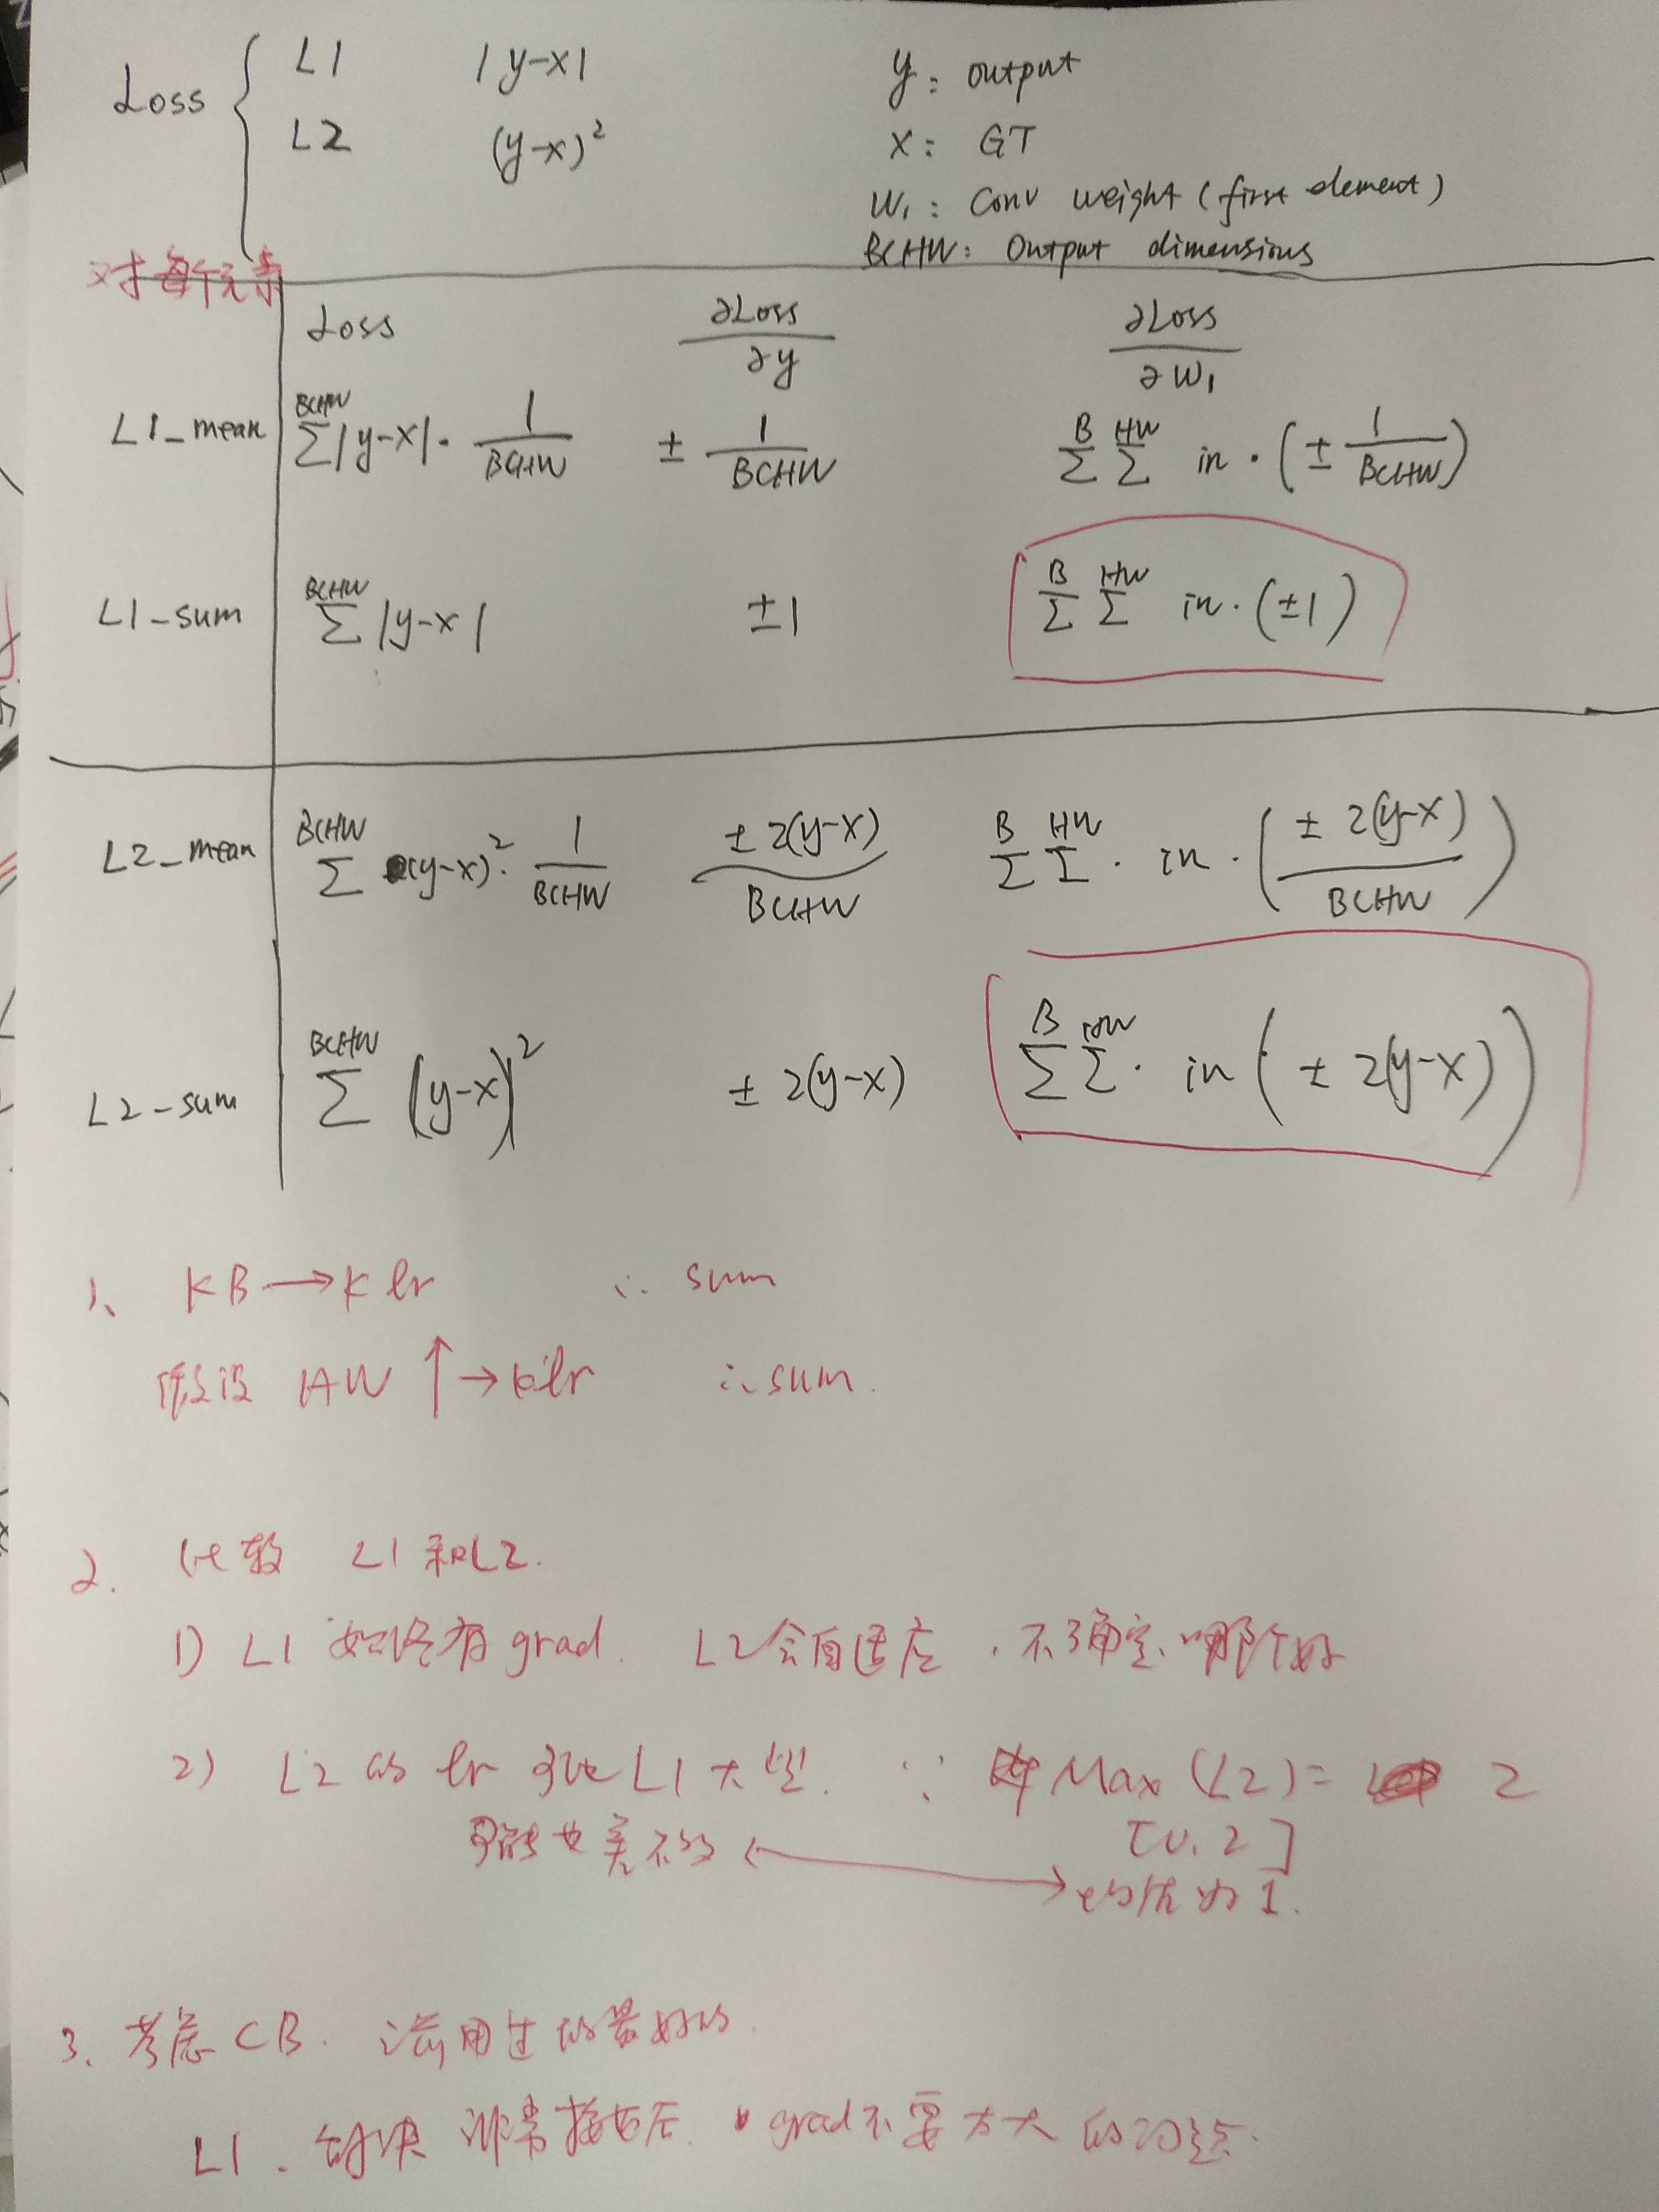 Loss { L1 |y-x| y: output
L2 (y-x)² x: GT
W₁: Conv weight (first element)
BCHW: Output dimensions
对每个元素
Loss ∂Loss/∂y ∂Loss/∂W₁
L1_mean ∑^{BCHW} |y-x| · 1/BCHW ± 1/BCHW ∑^{B} ∑^{HW} in · (± 1/BCHW)
L1-sum ∑^{BCHW} |y-x| ±1 ∑^{B} ∑^{HW} in · (±1)
L2_mean ∑^{BCHW} (y-x)² · 1/BCHW ± 2(y-x)/BCHW ∑^{B} ∑^{HW} · in · (± 2(y-x)/BCHW)
L2-sum ∑^{BCHW} (y-x)² ± 2(y-x) ∑^{B} ∑^{HW} · in (± 2(y-x))
1、 KB → K lr ∴ sum
假设 HW ↑ → k lr ∴ sum.
2. 比较 L1 和 L2.
1) L1 始终有 grad. L2 会自适应, 不确定哪个好
2) L2 的 lr 要比 L1 大些. ∵ Max (L2) = 2
可能也差不多 ⟷ [0, 2]
均值为 1.
3、考虑 CB. 适用 的最好的.
L1. 非常接近后. grad 不要太大 的